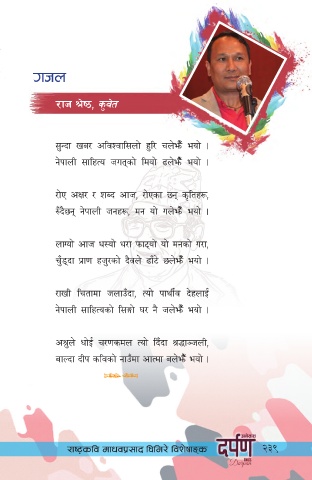 गजल
राज श्रेष्ठ, कुवेत
सुन्दा खबर अविश्वासिलो हुरि चलेझैँ भयो ।
नेपाली साहित्य जगत्को मियो ढलेझैँ भयो ।
रोए अक्षर र शब्द आज, रोएका छन् कृतिहरू,
रुँदैछन् नेपाली जनहरू, मन यो गलेझैँ भयो ।
लाग्यो आज धस्यो धरा फाट्यो यो मनको गरा,
चुँड्दा प्राण हजुरको दैवले ढाँटे छलेझैँ भयो ।
राखी चितामा जलाउँदा, त्यो पार्थीव देहलाई
नेपाली साहित्यको सिङ्गो घर नै जलेझैँ भयो ।
अश्रुले धोई चरणकमल त्यो दिँदा श्रद्धाञ्जली,
बाल्दा दीप कविको नाउँमा आत्मा बलेझैँ भयो ।
राष्ट्रकवि माधवप्रसाद घिमिरे विशेषाङ्क
दर्पण
Darpan
२३९